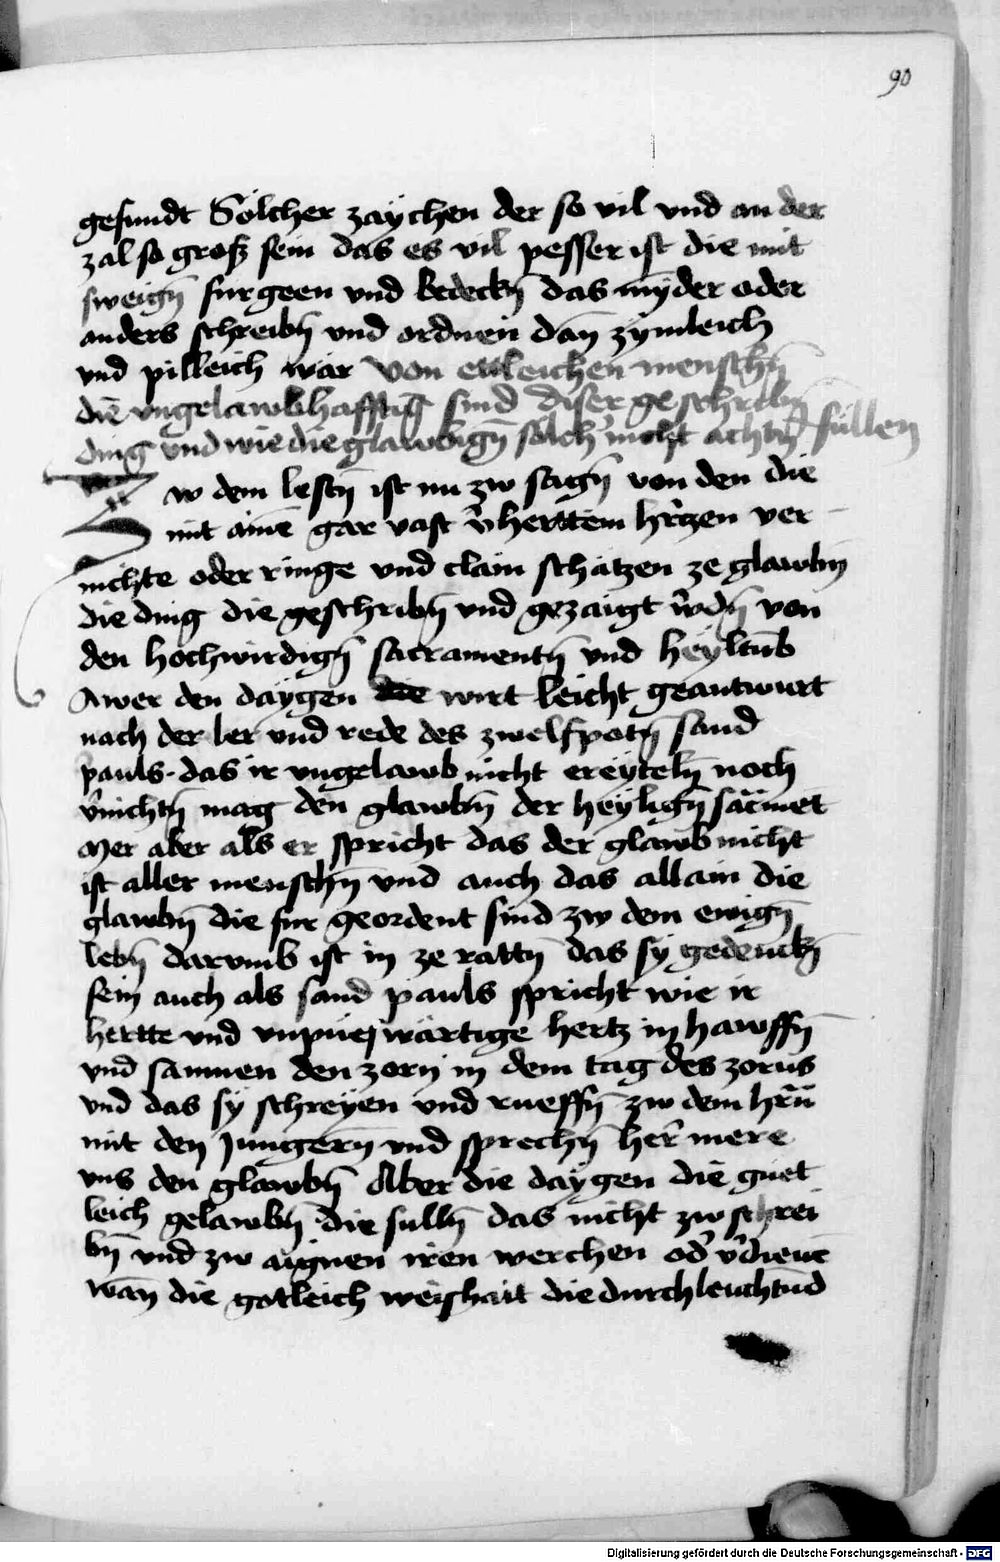 90
gesundt Sölcher zaychen der so vil vnd an der
zal so groß sein das es vil pesser ist die mit
sweign̄ furgeen vnd bedeckn̄ das mȳder oder
anders schreibn̄ vnd ordnen dan̄ zymleich
vnd pilleich wär von etleichen menschn̄
die vngelawbhafftig sind diser geschribn̄
ding vnd wie die glawbign̄ sölch nicht achtn̄ süllen
Zw dem lestn̄ ist nu zw sagn̄ von den die
mit aine gar vast v̉herttem hr̉tzen ver
nichte oder ringe vnd clain schätzen ze glawbn̄
die ding die geschribn̄ vnd gezaigt w̉dn̄ von
den hochwirdign̄ sacramentn̄ vnd heyltūb
Awer den daygen die wirt leicht geantwurt
nach der ler vnd rede des zwelfpotn̄ sand
pauls das ir vngelawb nicht ereyteln̄ noch
v̉nichtn̄ mag den glawbn̄ der heylign̄ säcmet
Mer aber als er spricht das der glawb nicht
ist aller menschn̄ vnd auch das allain die
glawbn̄ die fur geordent sind zw dem ewign̄
lebn̄ darvmb ist in ze rattn̄ das sy gedenckn̄
sein auch als sand pauls spricht wie ir
hertte vnd vnpueswärtige hertz in hawffn̄
vnd samen den zorn in dem tag des zorns
vnd das sy schreyen vnd rueffn̄ zw dem hr̄n̄
mit den Jungern̄ vnd sprechn̄ her̉ mere
vns den glawbn̄ Aber die daygen die guet
leich gelawbn̄ die sulln̄ das nicht zw schrei
bn̄ vnd zw aignen iren werchen od̉ v̉dienē
wan̄ die gotleich weishait die durchleuchtund
Digitalisierung gefördert durch die Deutsche Forschungsgemeinschaft - DFG